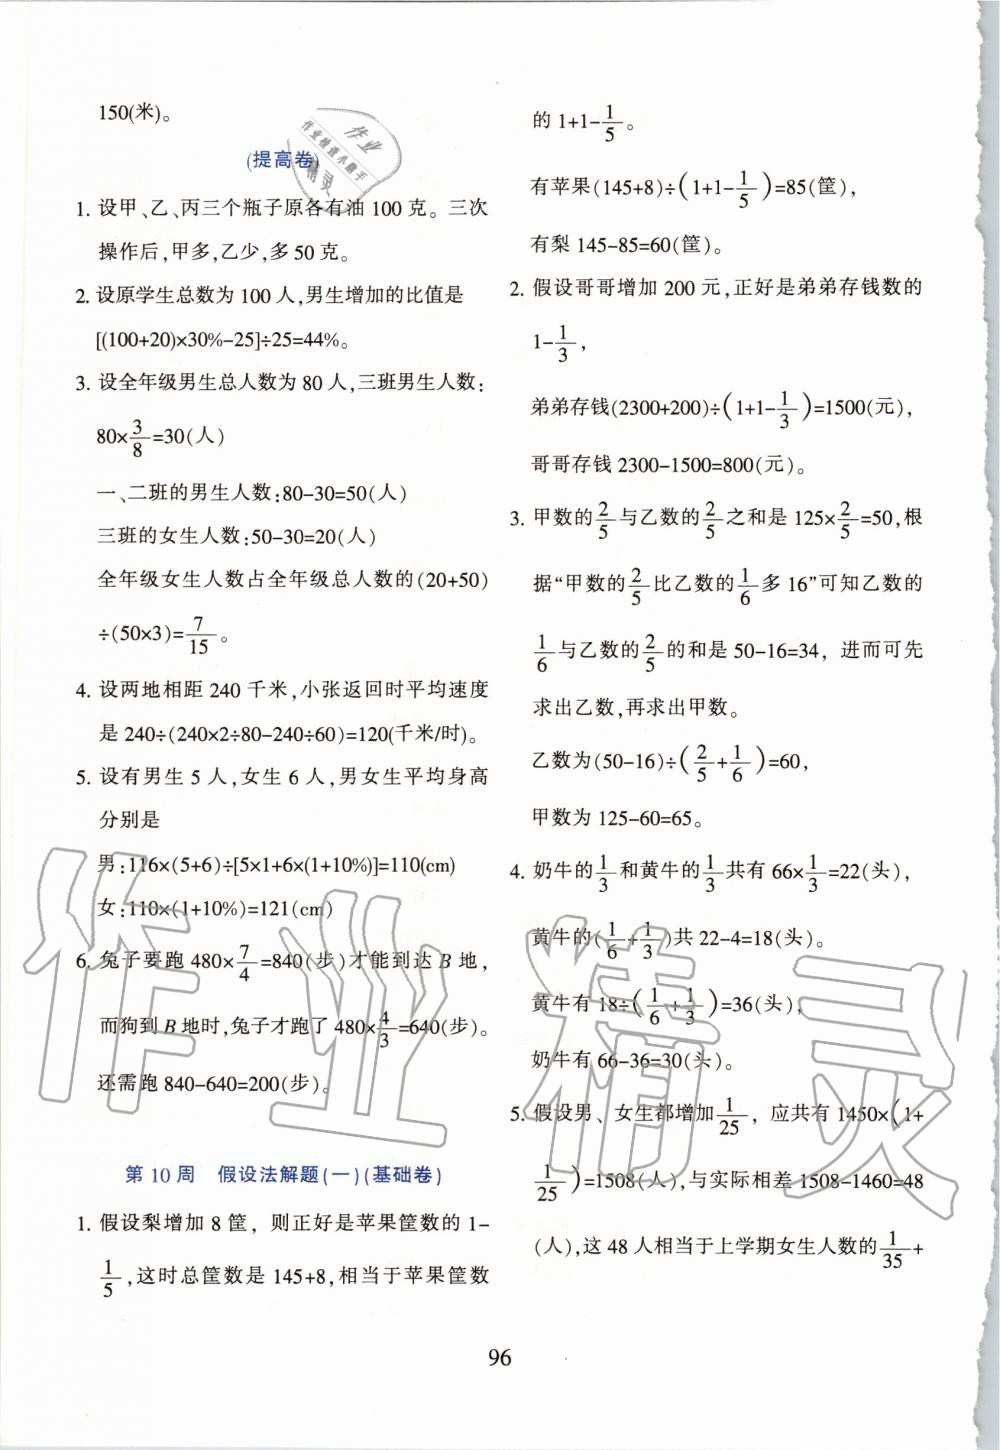 150(米)。
(提高卷)
1. 设甲、乙、丙三个瓶子原各有油 100 克。三次
操作后,甲多,乙少,多 50 克。
2. 设原学生总数为 100 人,男生增加的比值是
[(100+20)×30%-25]÷25=44%。
3. 设全年级男生总人数为 80 人,三班男生人数:
80×3/8=30(人)
一、二班的男生人数:80-30=50(人)
三班的女生人数:50-30=20(人)
全年级女生人数占全年级总人数的(20+50)
÷(50×3)=7/15。
4. 设两地相距 240 千米,小张返回时平均速度
是 240÷(240×2÷80-240÷60)=120(千米/时)。
5. 设有男生 5 人,女生 6 人,男女生平均身高
分别是
男:116×(5+6)÷[5×1+6×(1+10%)]=110(cm)
女:110×(1+10%)=121(cm)
6. 兔子要跑 480×7/4=840(步)才能到达 B 地,
而狗到 B 地时,兔子才跑了 480×4/3=640(步)。
还需跑 840-640=200(步)。
第 10 周 假设法解题(一)(基础卷)
1. 假设梨增加 8 筐, 则正好是苹果筐数的 1-
1/5,这时总筐数是 145+8,相当于苹果筐数
的 1+1-1/5。
有苹果(145+8)÷(1+1-1/5)=85(筐),
有梨 145-85=60(筐)。
2. 假设哥哥增加 200 元,正好是弟弟存钱数的
1-1/3,
弟弟存钱(2300+200)÷(1+1-1/3)=1500(元),
哥哥存钱 2300-1500=800(元)。
3. 甲数的2/5与乙数的2/5之和是 125×2/5=50,根
据“甲数的2/5比乙数的1/6多 16”可知乙数的
1/6与乙数的2/5的和是 50-16=34, 进而可先
求出乙数,再求出甲数。
乙数为(50-16)÷(2/5+1/6)=60,
甲数为 125-60=65。
4. 奶牛的1/3和黄牛的1/3共有 66×1/3=22(头),
黄牛的(1/6+1/3)共 22-4=18(头)。
黄牛有 18÷(1/6+1/3)=36(头),
奶牛有 66-36=30(头)。
5. 假设男、女生都增加1/25, 应共有 1450×(1+
1/25)=1508(人),与实际相差 1508-1460=48
(人),这 48 人相当于上学期女生人数的1/35+
96
作业
作业检查小助手
精灵
作业精灵